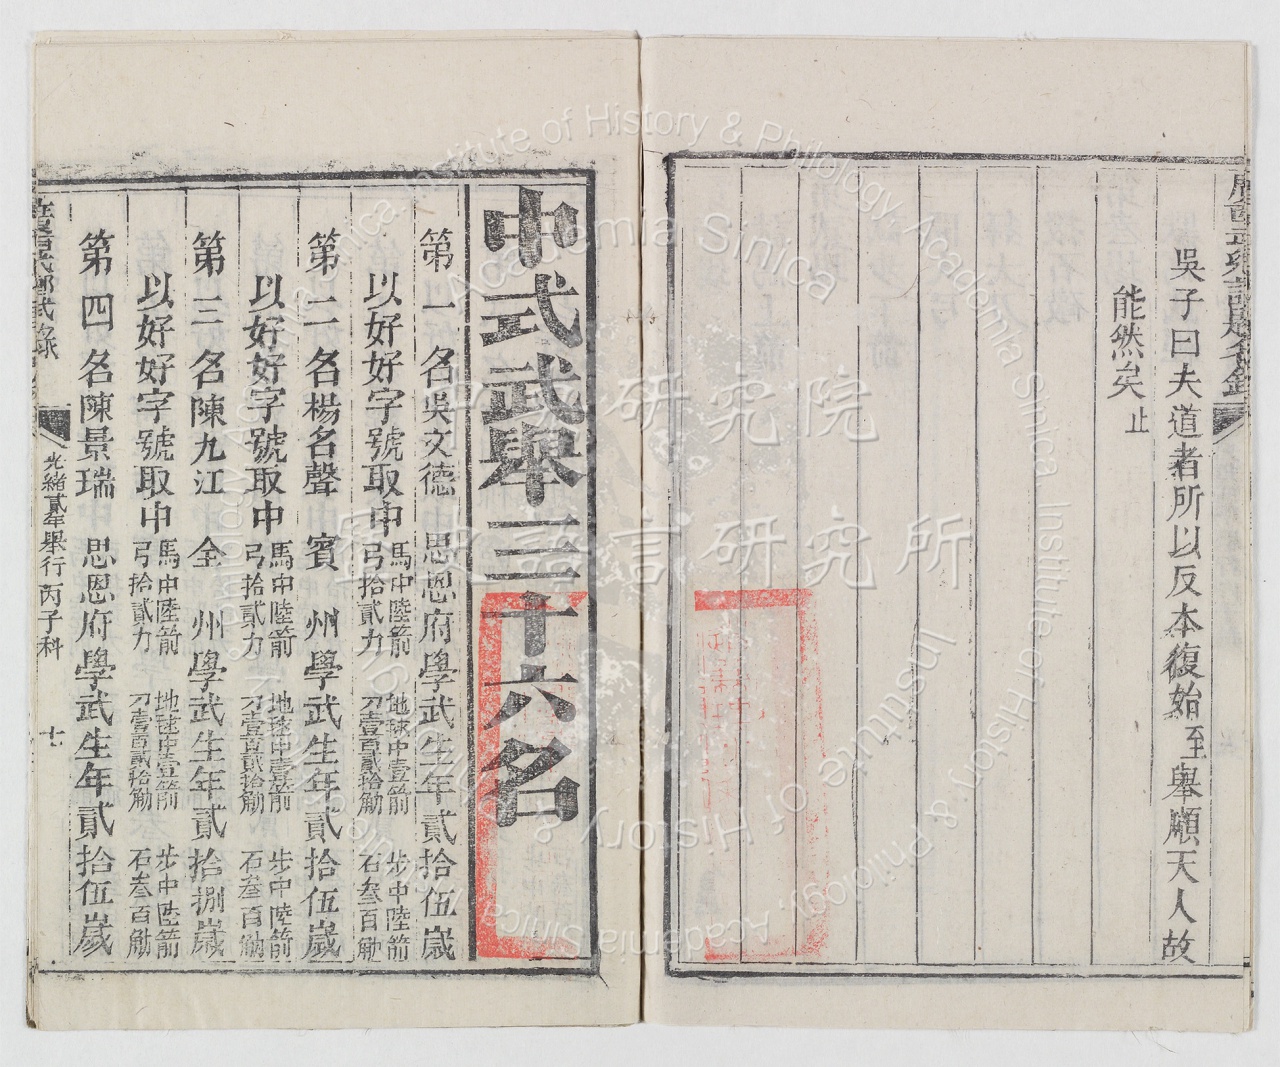 吳子曰夫道者所以反本復始至舉順天人故
能然矣止
中式武舉三十六名
第一名吳文德思恩府學武生年貳拾伍歲
以好好字號取中馬中陸箭地毬中壹箭步中陸箭
弓拾貳力刀壹百貳拾觔石叁百觔
第二名楊名聲賓州學武生年貳拾伍歲
以好好字號取中馬中陸箭地毬中壹箭步中陸箭
弓拾貳力刀壹百貳拾觔石叁百觔
第三名陳九江全州學武生年貳拾捌歲
以好好字號取中馬中陸箭地毬中壹箭步中陸箭
弓拾貳力刀壹百貳拾觔石叁百觔
第四名陳景瑞思恩府學武生年貳拾伍歲
光緒貳年舉行丙子科
中央研究院
歷史語言研究所
Institute of History & Philology, Academia Sinica